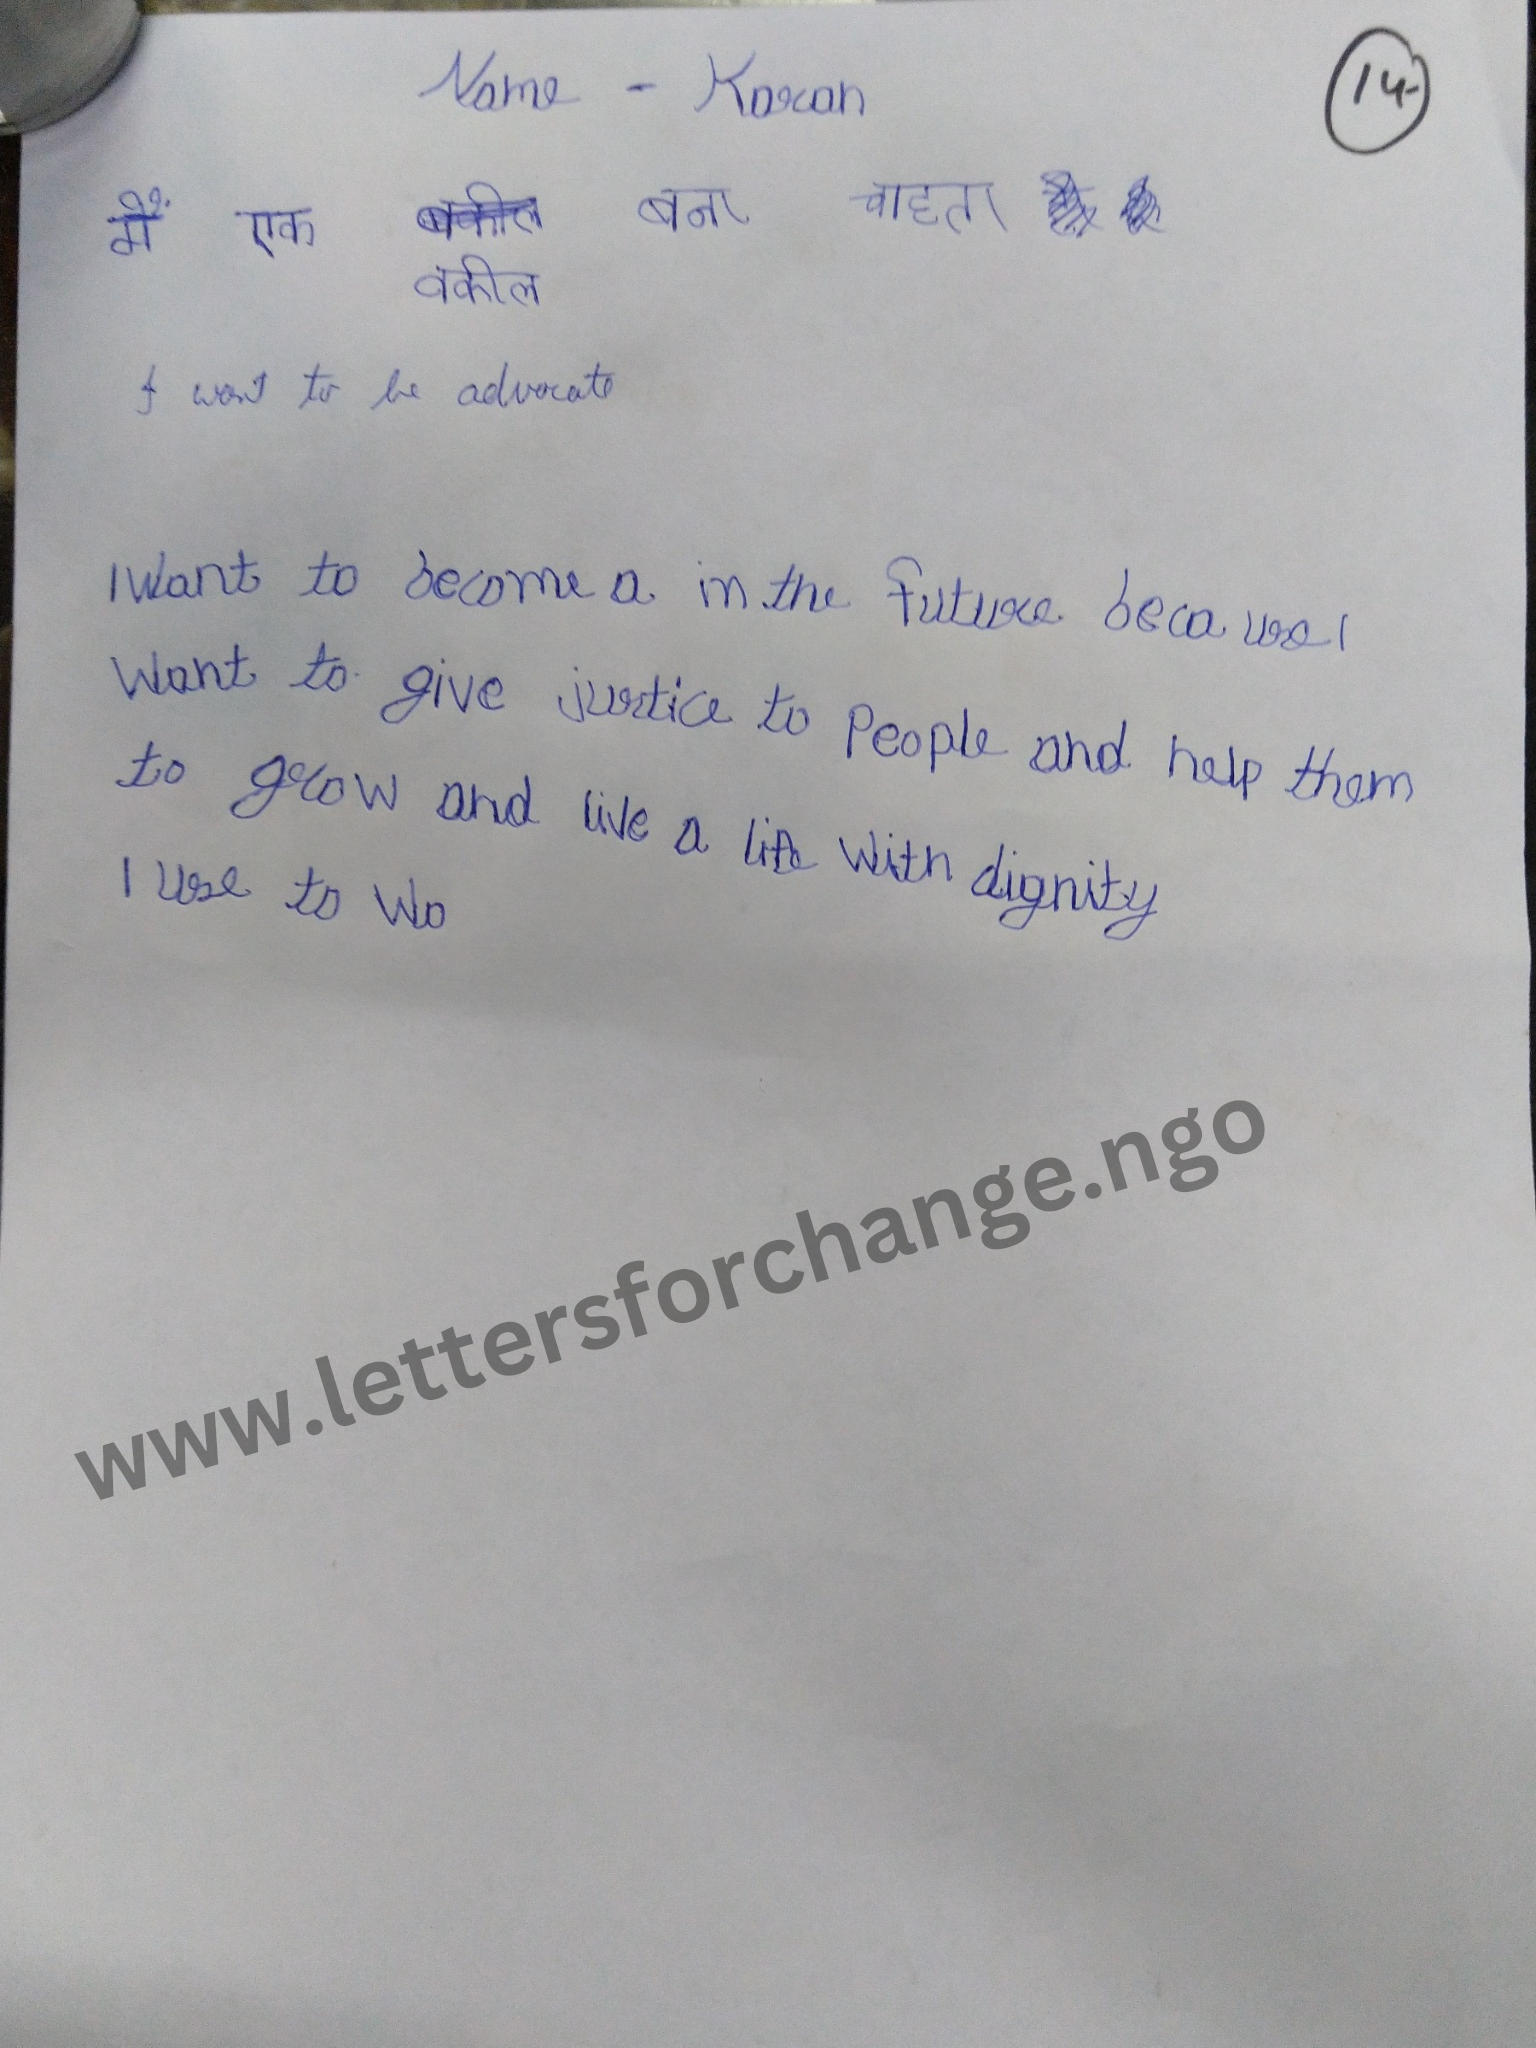 Name - Karan
14
मैं एक वकील बना चाहता
I want to be advocate
I want to become a in the future because I
want to give justice to people and help them
to grow and live a life with dignity
I use to wo
www.lettersforchange.ngo